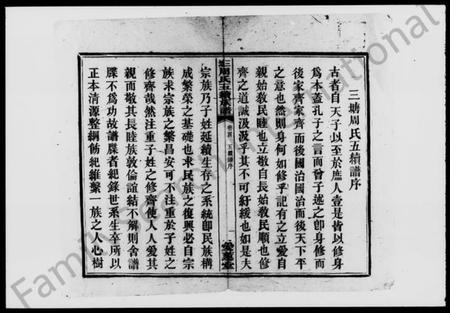 三塘周氏五續譜序
古者自天子以至於庶人壹是皆以修身
為本蓋孔子之言而曾子述之卽身修而
後家齊家齊而後國治國治而後天下平
之意也然則身何如修乎記有之立愛自
親始敎民睦也立敬自長始敎民順也修
齊之道誠汲汲乎其不可紓緩也如是夫
三塘周氏五續族譜
卷首 五續譜序
一
愛蓮堂
宗族乃子姓延續生存之系統卽民族構
成繁榮之基礎也求民族之復興必自宗
族求宗族之繁昌安可不注重於子姓之
修齊哉然注重子姓之修齊使人人愛其
親而敬其長睦族敦倫誼結不解則舍譜
牒不為功故譜牒者紀錄世系生卒所以
正本清源整綱飭紀維繫一族之人心樹
FamilySearch International